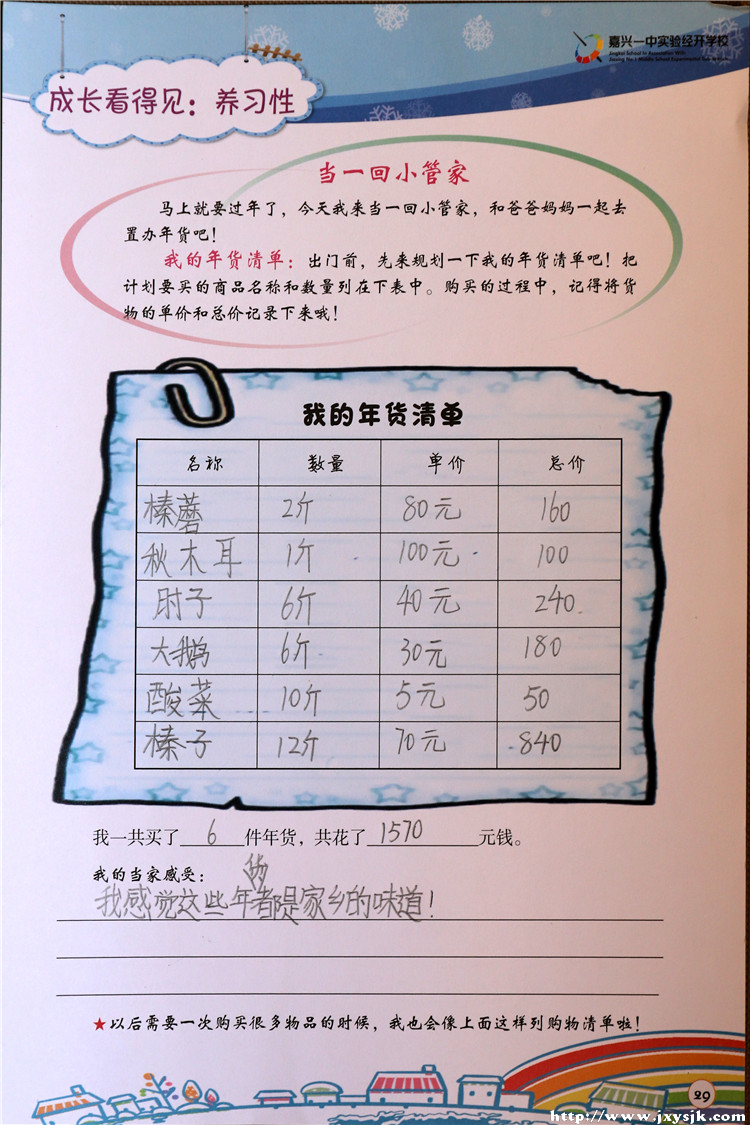 嘉兴一中实验经开学校
成长看得见：养习性
当一回小管家
马上就要过年了，今天我来当一回小管家，和爸爸妈妈一起去
置办年货吧！
我的年货清单：出门前，先来规划一下我的年货清单吧！把
计划要买的商品名称和数量列在下表中。购买的过程中，记得将货
物的单价和总价记录下来哦！
我的年货清单
名称 数量 单价 总价
榛蘑 2斤 80元 160
秋木耳 1斤 100元 100
肘子 6斤 40元 240
大鹅 6斤 30元 180
酸菜 10斤 5元 50
榛子 12斤 70元 840
我一共买了 6 件年货，共花了 1570 元钱。
我的当家感受：
我感觉这些年货都是家乡的味道！
★以后需要一次购买很多物品的时候，我也会像上面这样列购物清单啦！
29
http://www.jxysjk.com